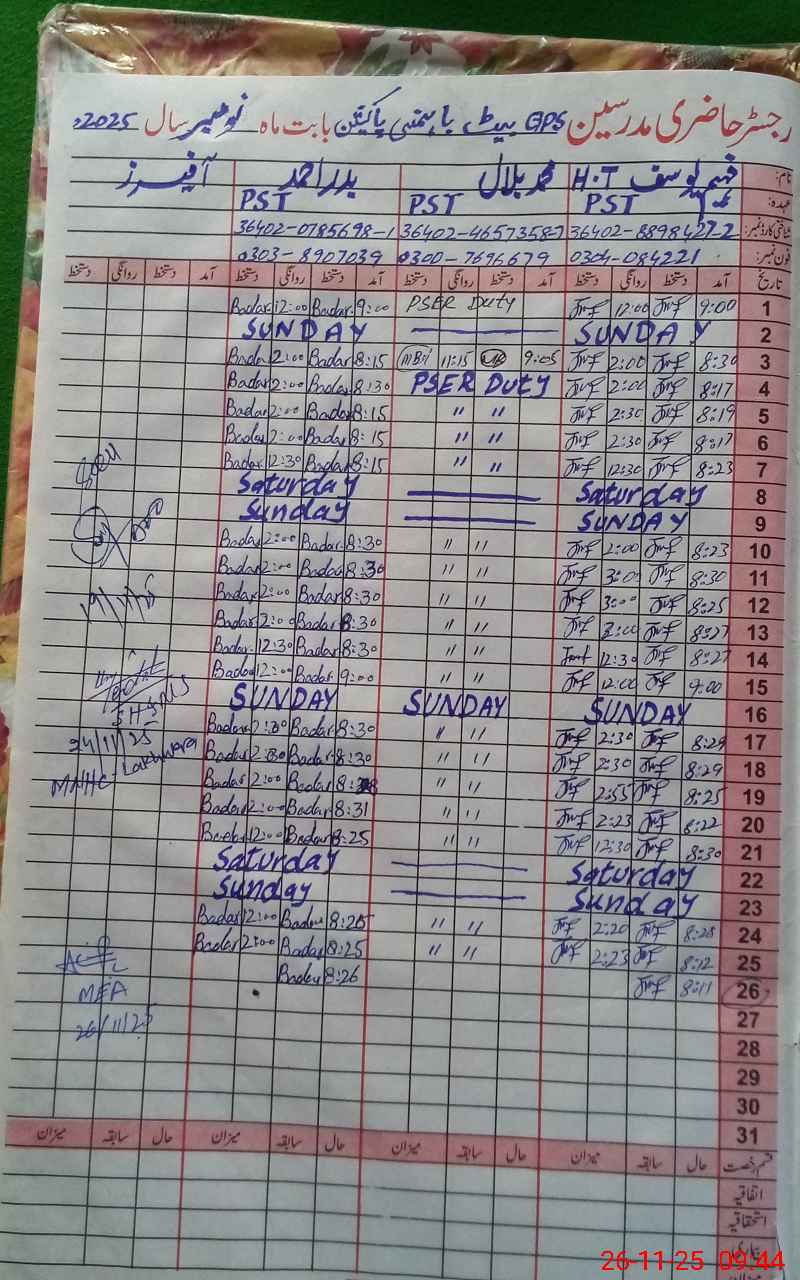 رجسٹر حاضری مدرسین GPS بیٹ باہمنی پاکپتن بابت ماہ نومبر سال 2025ء
نام: فہیم یوسف H.T محمد بلال بدر احمد آفیسرز
عہدہ: PST PST PST
شناختی کارڈ نمبر: 36402-8898427-2 36402-4657358-7 36402-0785698-1
فون نمبر: 0304-084221 0300-7696679 0303-8907039
تاریخ آمد دستخط روانگی دستخط آمد دستخط روانگی دستخط آمد دستخط روانگی دستخط آمد دستخط روانگی دستخط
1 9:00 12:00 PSER Duty 9:00 Badar 12:00 Badar
2 SUNDAY SUNDAY
3 8:30 2:00 9:05 11:15 8:15 Badar 2:00 Badar
4 8:17 2:00 PSER Duty 8:30 Badar 2:00 Badar
5 8:19 2:30 " " 8:15 Badar 2:00 Badar
6 8:17 2:30 " " 8:15 Badar 2:00 Badar
7 8:23 12:30 " " 8:15 Badar 12:30 Badar
8 Saturday Saturday
9 SUNDAY Sunday
10 8:23 2:00 " " 8:30 Badar 2:00 Badar
11 8:30 3:00 " " 8:30 Badar 2:00 Badar
12 8:25 3:00 " " 8:30 Badar 2:00 Badar
13 8:27 2:00 " " 8:30 Badar 2:00 Badar
14 8:27 12:30 " " 8:30 Badar 12:30 Badar
15 9:00 12:00 " " 9:00 Badar 12:00 Badar
16 SUNDAY SUNDAY SUNDAY
17 8:29 2:30 " " 8:30 Badar 2:30 Badar
18 8:29 2:30 " " 8:30 Badar 2:30 Badar
19 8:25 2:55 " " Badar 2:00 Badar
20 8:22 2:23 " " 8:31 Badar 2:00 Badar
21 8:30 12:30 " " 8:25 Badar 12:00 Badar
22 Saturday Saturday
23 Sunday Sunday
24 8:28 2:20 " " 8:25 Badar 2:00 Badar
25 8:12 2:23 " " 8:25 Badar 2:00 Badar
26 8:11 8:26 Badar
27
28
29
30
31
Seen
19/11/25
24/11/25
MNHC-Lakhwera
MEA
26/11/25
قسم رخصت حال سابقہ میزان حال سابقہ میزان حال سابقہ میزان حال سابقہ میزان
اتفاقیہ
استحقاقیہ
بیماری
میزان
26-11-25 09:44